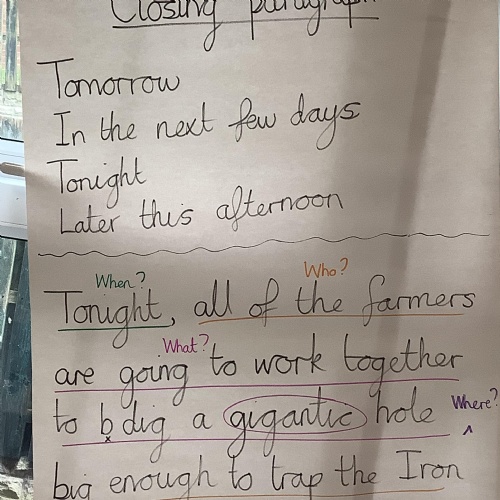 Closing paragraph
Tomorrow
In the next few days
Tonight
Later this afternoon
When? Who?
Tonight, all of the farmers
What?
are going to work together
Where?
to b dig a gigantic hole
big enough to trap the Iron